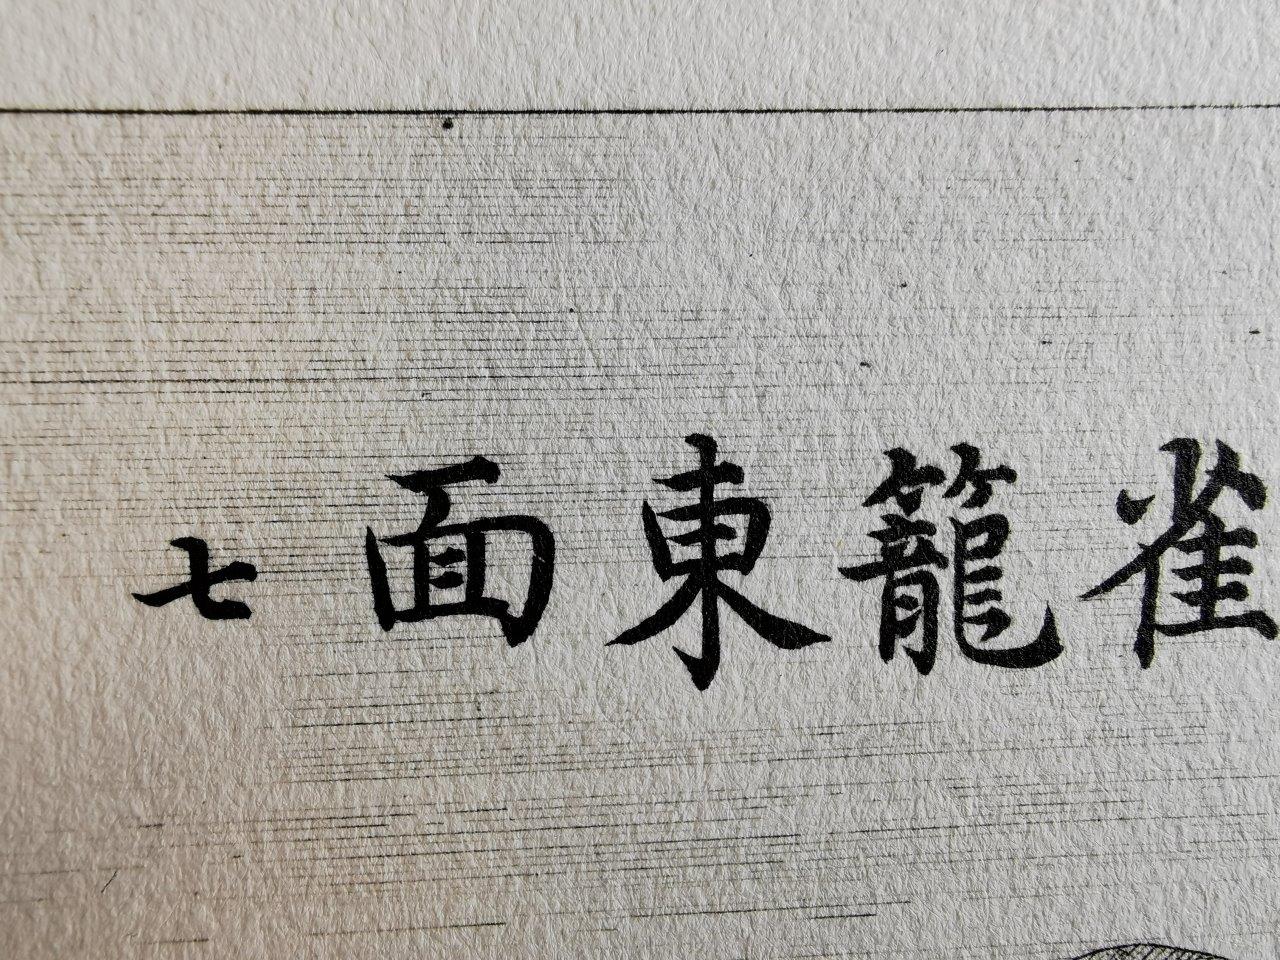 雀籠東面七